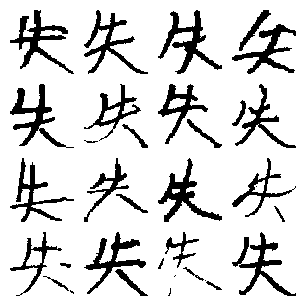 失失失失
失失失失
失失失失
失失失失